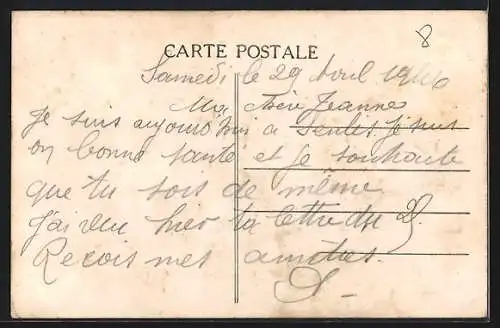 8
CARTE POSTALE
Samedi le 29 Avril 1916
Ma chère Jeanne
Je suis aujourd'hui a Senlis. je suis
en bonne santé et je souhaite
que tu sois de même
J'ai reçu hier ta lettre du
Reçois mes amitiés.